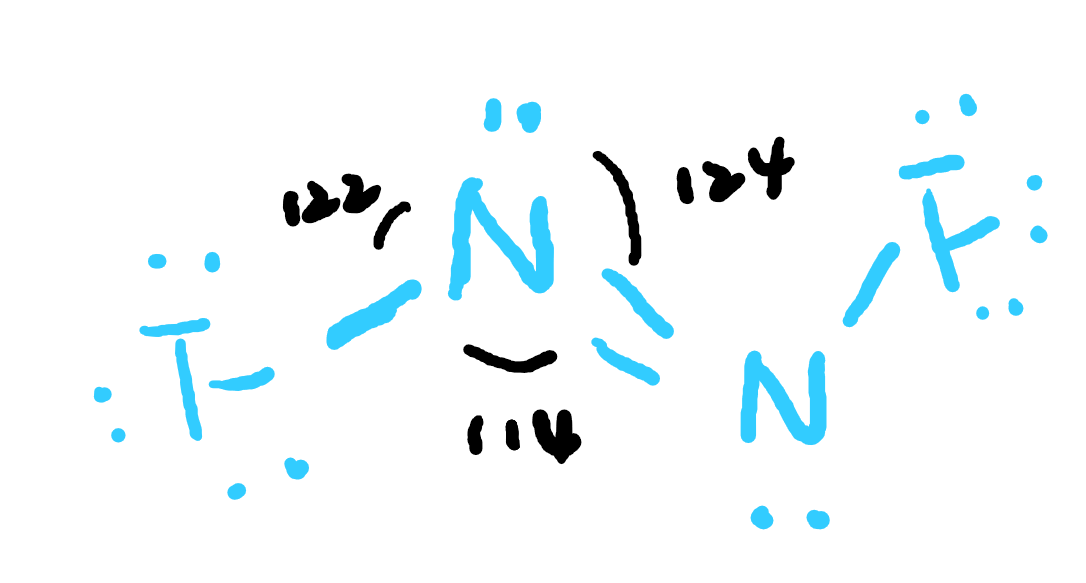 122 N 124 F
F N
114